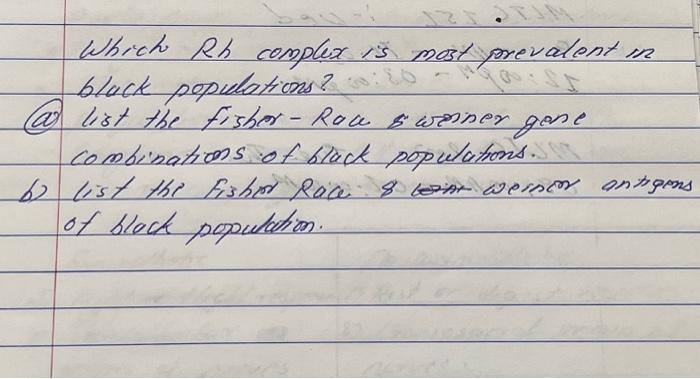 Which Rh complex is most prevalent in
black populations?
(a) list the Fisher-Race & weiner gene
combinations of black populations.
b) list the Fisher Race & weiner antigens
of black population.